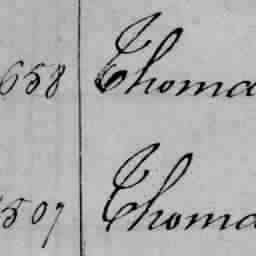 658 Thoma
507 Thoma